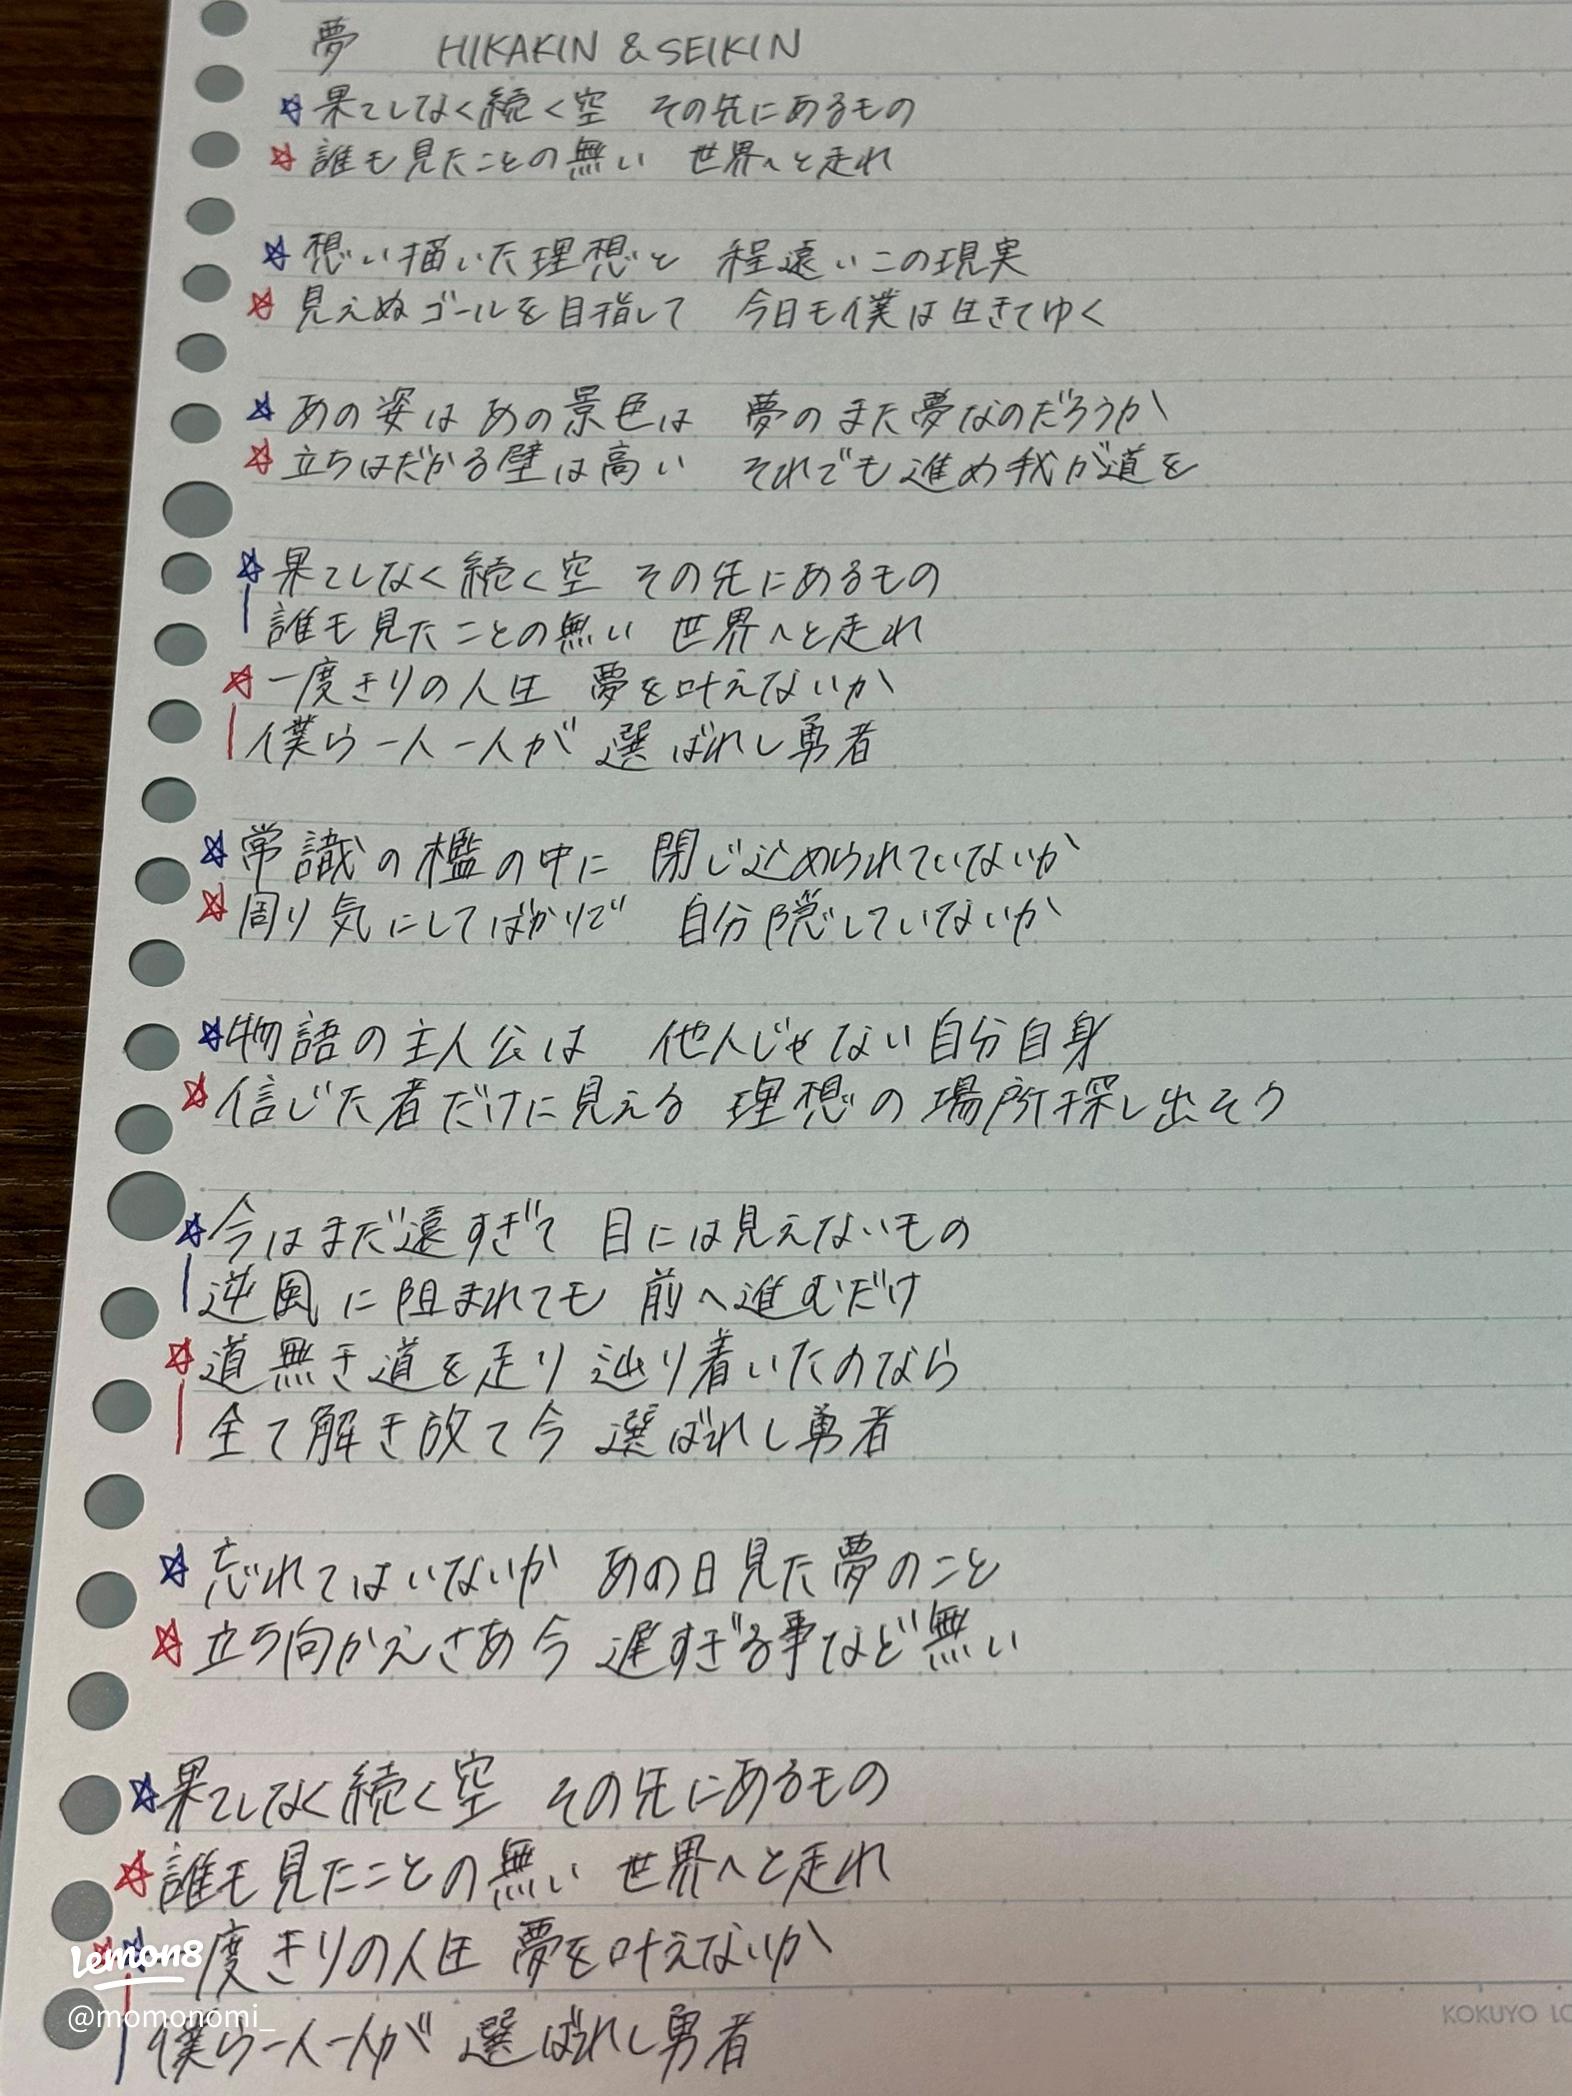 夢 HIKAKIN & SEIKIN
☆果てしなく続く空 その先にあるもの
☆誰も見たことの無い 世界へと走れ
☆想い描いた理想と 程遠いこの現実
☆見えぬゴールを目指して 今日も僕は生きてゆく
☆あの姿はあの景色は 夢のまた夢なのだろうか
☆立ちはだかる壁は高い それでも進め我が道を
☆果てしなく続く空 その先にあるもの
誰も見たことの無い 世界へと走れ
☆一度きりの人生 夢を叶えないか
僕ら一人一人が 選ばれし勇者
☆常識の檻の中に 閉じ込められていないか
☆周り気にしてばかりで 自分隠していないか
☆物語の主人公は 他人じゃない自分自身
☆信じた者だけに見える 理想の場所探し出そう
☆今はまだ遠すぎて 目には見えないもの
逆風に阻まれても 前へ進むだけ
☆道無き道を走り 辿り着いたのなら
全て解き放て今 選ばれし勇者
☆忘れてはいないか あの日見た夢のこと
☆立ち向かえさあ今 遅すぎる事など無い
☆果てしなく続く空 その先にあるもの
☆誰も見たことの無い 世界へと走れ
☆☆一度きりの人生 夢を叶えないか
僕ら一人一人が 選ばれし勇者
lemon8
@momonomi_
KOKUYO